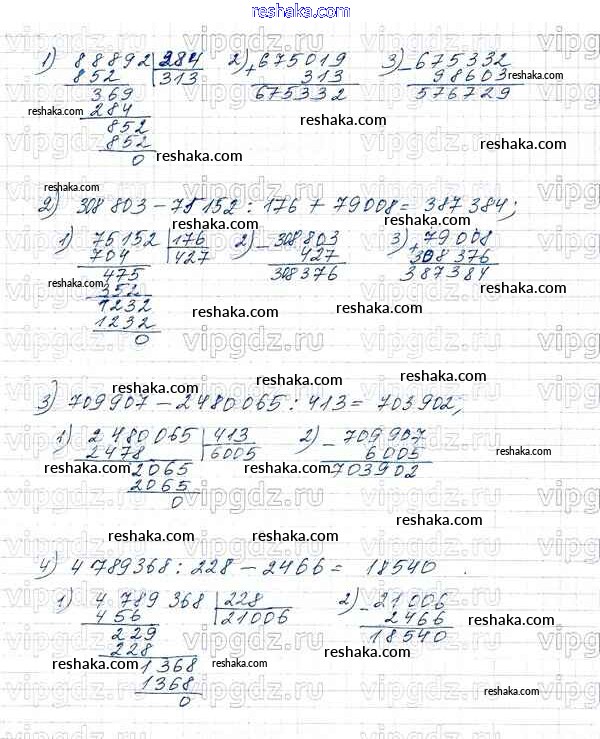 reshaka.com
1) 88892 | 284 2) + 675019 3) - 675332
852 | 313 313 98603 reshaka.com
369 675332 576729
reshaka.com 284
852 reshaka.com
852
0 reshaka.com
reshaka.com
2) 308 803 - 75152 : 176 + 79008 = 387384;
reshaka.com
1) 75152 | 176 2) - 308803 3) + 79008
704 | 427 427 308 376
475 308376 387384
352
1232 reshaka.com reshaka.com
1232
0
reshaka.com reshaka.com
3) 709907 - 2480065 : 413 = 703902;
1) 2480065 | 413 2) - 709907
2478 | 6005 6005 reshaka.com
reshaka.com 2065 703902
2065 reshaka.com
0
reshaka.com reshaka.com
reshaka.com
4) 4789368 : 228 - 2466 = 18540.
1) 4 789 368 | 228 2) - 21006
456 | 21006 2466 reshaka.com
229 18540
228
reshaka.com 1368 reshaka.com reshaka.com
1368
reshaka.com 0 reshaka.com
vipgdz.ru